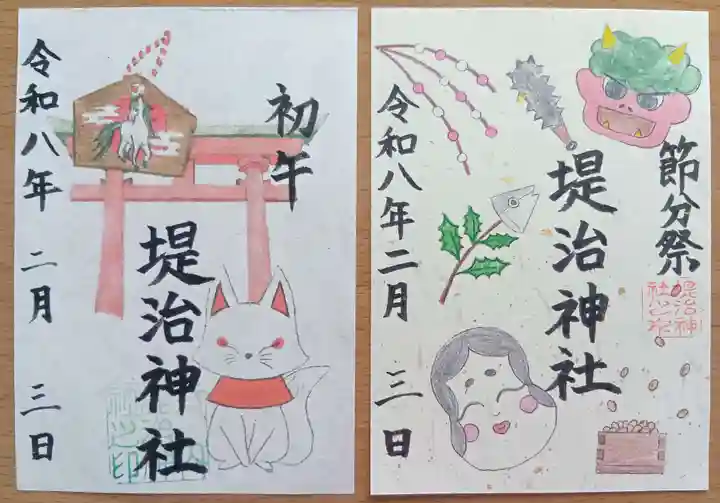 初午
堤治神社
令和八年 二月 三日
節分祭
堤治神社
令和八年二月 三日
堤治神
社之印